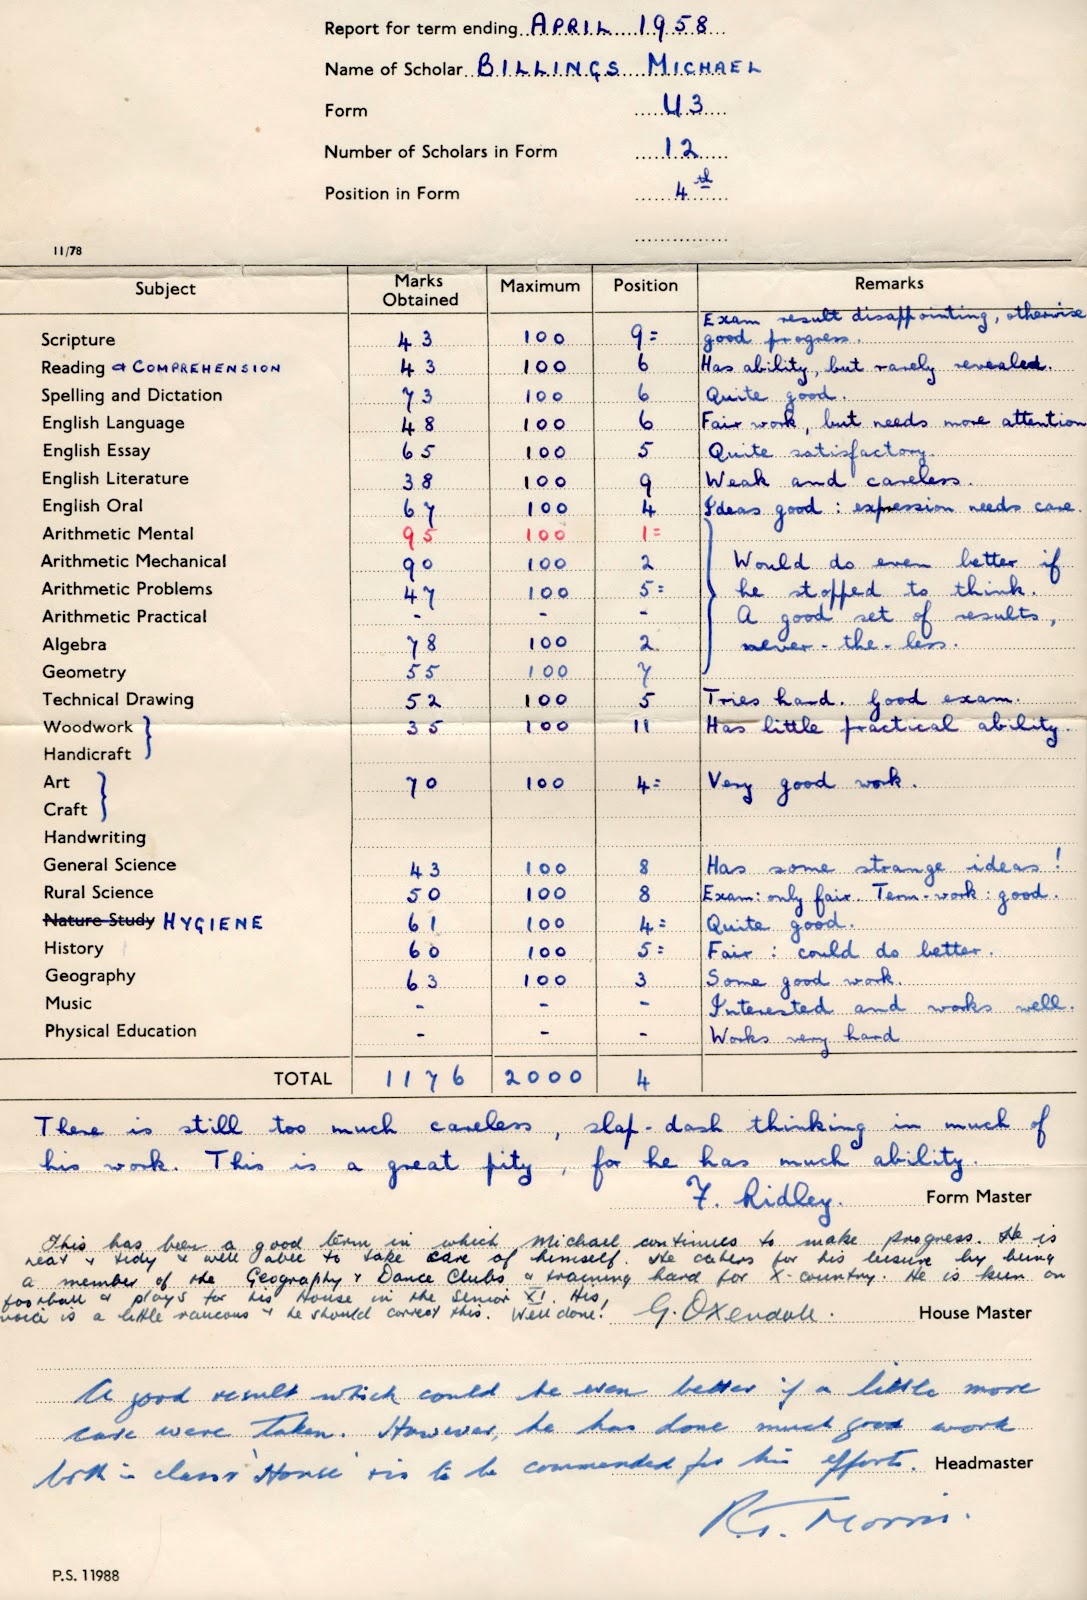 Report for term ending APRIL 1958
Name of Scholar BILLINGS MICHAEL
Form U3
Number of Scholars in Form 12
Position in Form 4th
11/78
Subject Marks Obtained Maximum Position Remarks
Scripture 43 100 9= Exam result disappointing, otherwise good progress.
Reading & COMPREHENSION 43 100 6 Has ability, but rarely revealed.
Spelling and Dictation 73 100 6 Quite good.
English Language 48 100 6 Fair work, but needs more attention
English Essay 65 100 5 Quite satisfactory.
English Literature 38 100 9 Weak and careless.
English Oral 67 100 4 Ideas good : expression needs care.
Arithmetic Mental 95 100 1=
Arithmetic Mechanical 90 100 2 Would do even better if
Arithmetic Problems 47 100 5= he stopped to think.
Arithmetic Practical - - - A good set of results,
Algebra 78 100 2 never-the-less.
Geometry 55 100 7
Technical Drawing 52 100 5 Tries hard. Good exam.
Woodwork 35 100 11 Has little practical ability.
Handicraft
Art 70 100 4= Very good work.
Craft
Handwriting
General Science 43 100 8 Has some strange ideas!
Rural Science 50 100 8 Exam: only fair. Term-work: good.
Nature Study HYGIENE 61 100 4= Quite good.
History 60 100 5= Fair : could do better.
Geography 63 100 3 Some good work.
Music - - - Interested and works well.
Physical Education - - - Works very hard
TOTAL 1176 2000 4
There is still too much careless, slap-dash thinking in much of
his work. This is a great pity, for he has much ability.
F. Ridley. Form Master
This has been a good term in which Michael continues to make progress. He is
neat & tidy & well able to take care of himself. He caters for his leisure by being
a member of the Geography & Dance Clubs & training hard for X-country. He is keen on
football & plays for his House in the Senior XI. His
voice is a little raucous & he should correct this. Well done! G. Oxendale. House Master
A good result which could be even better if a little more
care were taken. However, he has done much good work
both in class & 'House' & is to be commended for his efforts. Headmaster
R.T. Morris.
P.S. 11988